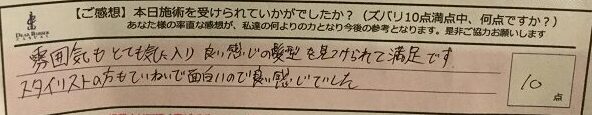 【ご感想】本日施術を受けられていかがでしたか？（ズバリ10点満点中、何点ですか？）
あなた様の率直な感想が、私達の何よりの力となり今後の参考となります。是非ご協力お願いします
雰囲気も とても気に入り 良い感じの髪型を見つけられて満足です
スタイリストの方もていねいで面白いので良い感じでした
10点